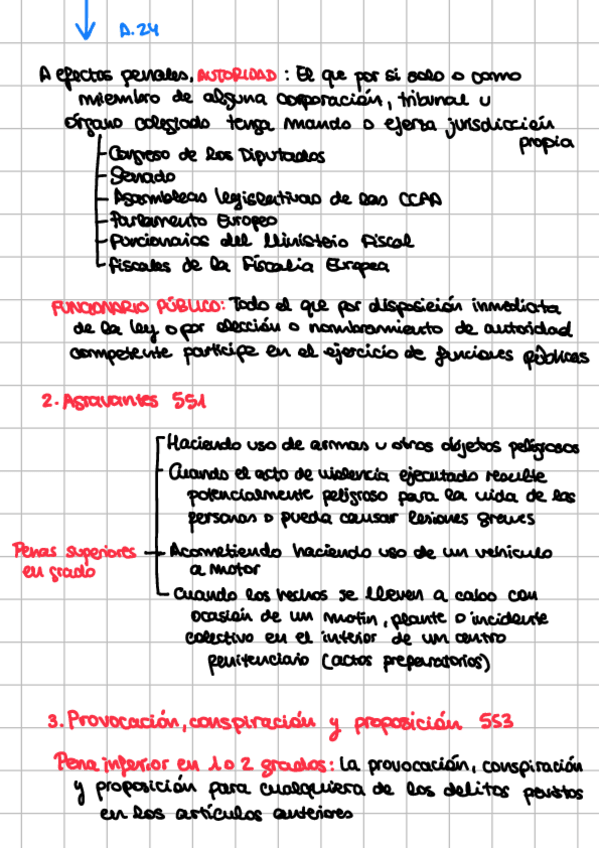 A.24
A efectos penales, AUTORIDAD: El que por si solo o como
miembro de alguna corporación, tribunal u
órgano colegiado tenga mando o ejerza jurisdicción
propia
- Congreso de los Diputados
- Senado
- Asambleas legislativas de las CCAA
- Parlamento Europeo
- Funcionarios del Ministerio Fiscal
- Fiscales de la Fiscalia Europea
FUNCIONARIO PÚBLICO: Todo el que por disposición inmediata
de la ley o por elección o nombramiento de autoridad
competente participe en el ejercicio de funciones públicas
2. Agravantes 551
Haciendo uso de armas u otros objetos peligrosos
Cuando el acto de violencia ejecutado resulte
potencialmente peligroso para la vida de las
personas o pueda causar lesiones graves
Penas superiores
en grado
Acometiendo haciendo uso de un vehículo
a motor
Cuando los hechos se lleven a cabo con
ocasión de un motín, plante o incidente
colectivo en el interior de un centro
penitenciario (actos preparatorios)
3. Provocación, conspiración y proposición 553
Pena inferior en 1 o 2 grados: La provocación, conspiración
y proposición para cualquiera de los delitos previstos
en los artículos anteriores